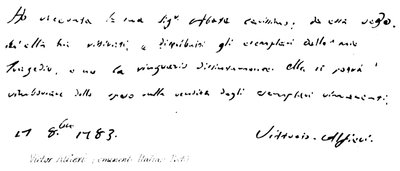 Ho ricevuta la sua Sig.r Abate carissimo; da essa vedo,
ch'ella ha ritirati, e distribuiti gli esemplari delle mie
Tragedie, e ne la ringrazio distintamente. Ella si potrà
rimborsare delle spese sulla vendita degli esemplari rimanenti.
17 8.bre 1783. Vittorio Alfieri.
Victor Alfieri, eminent Italian Poet